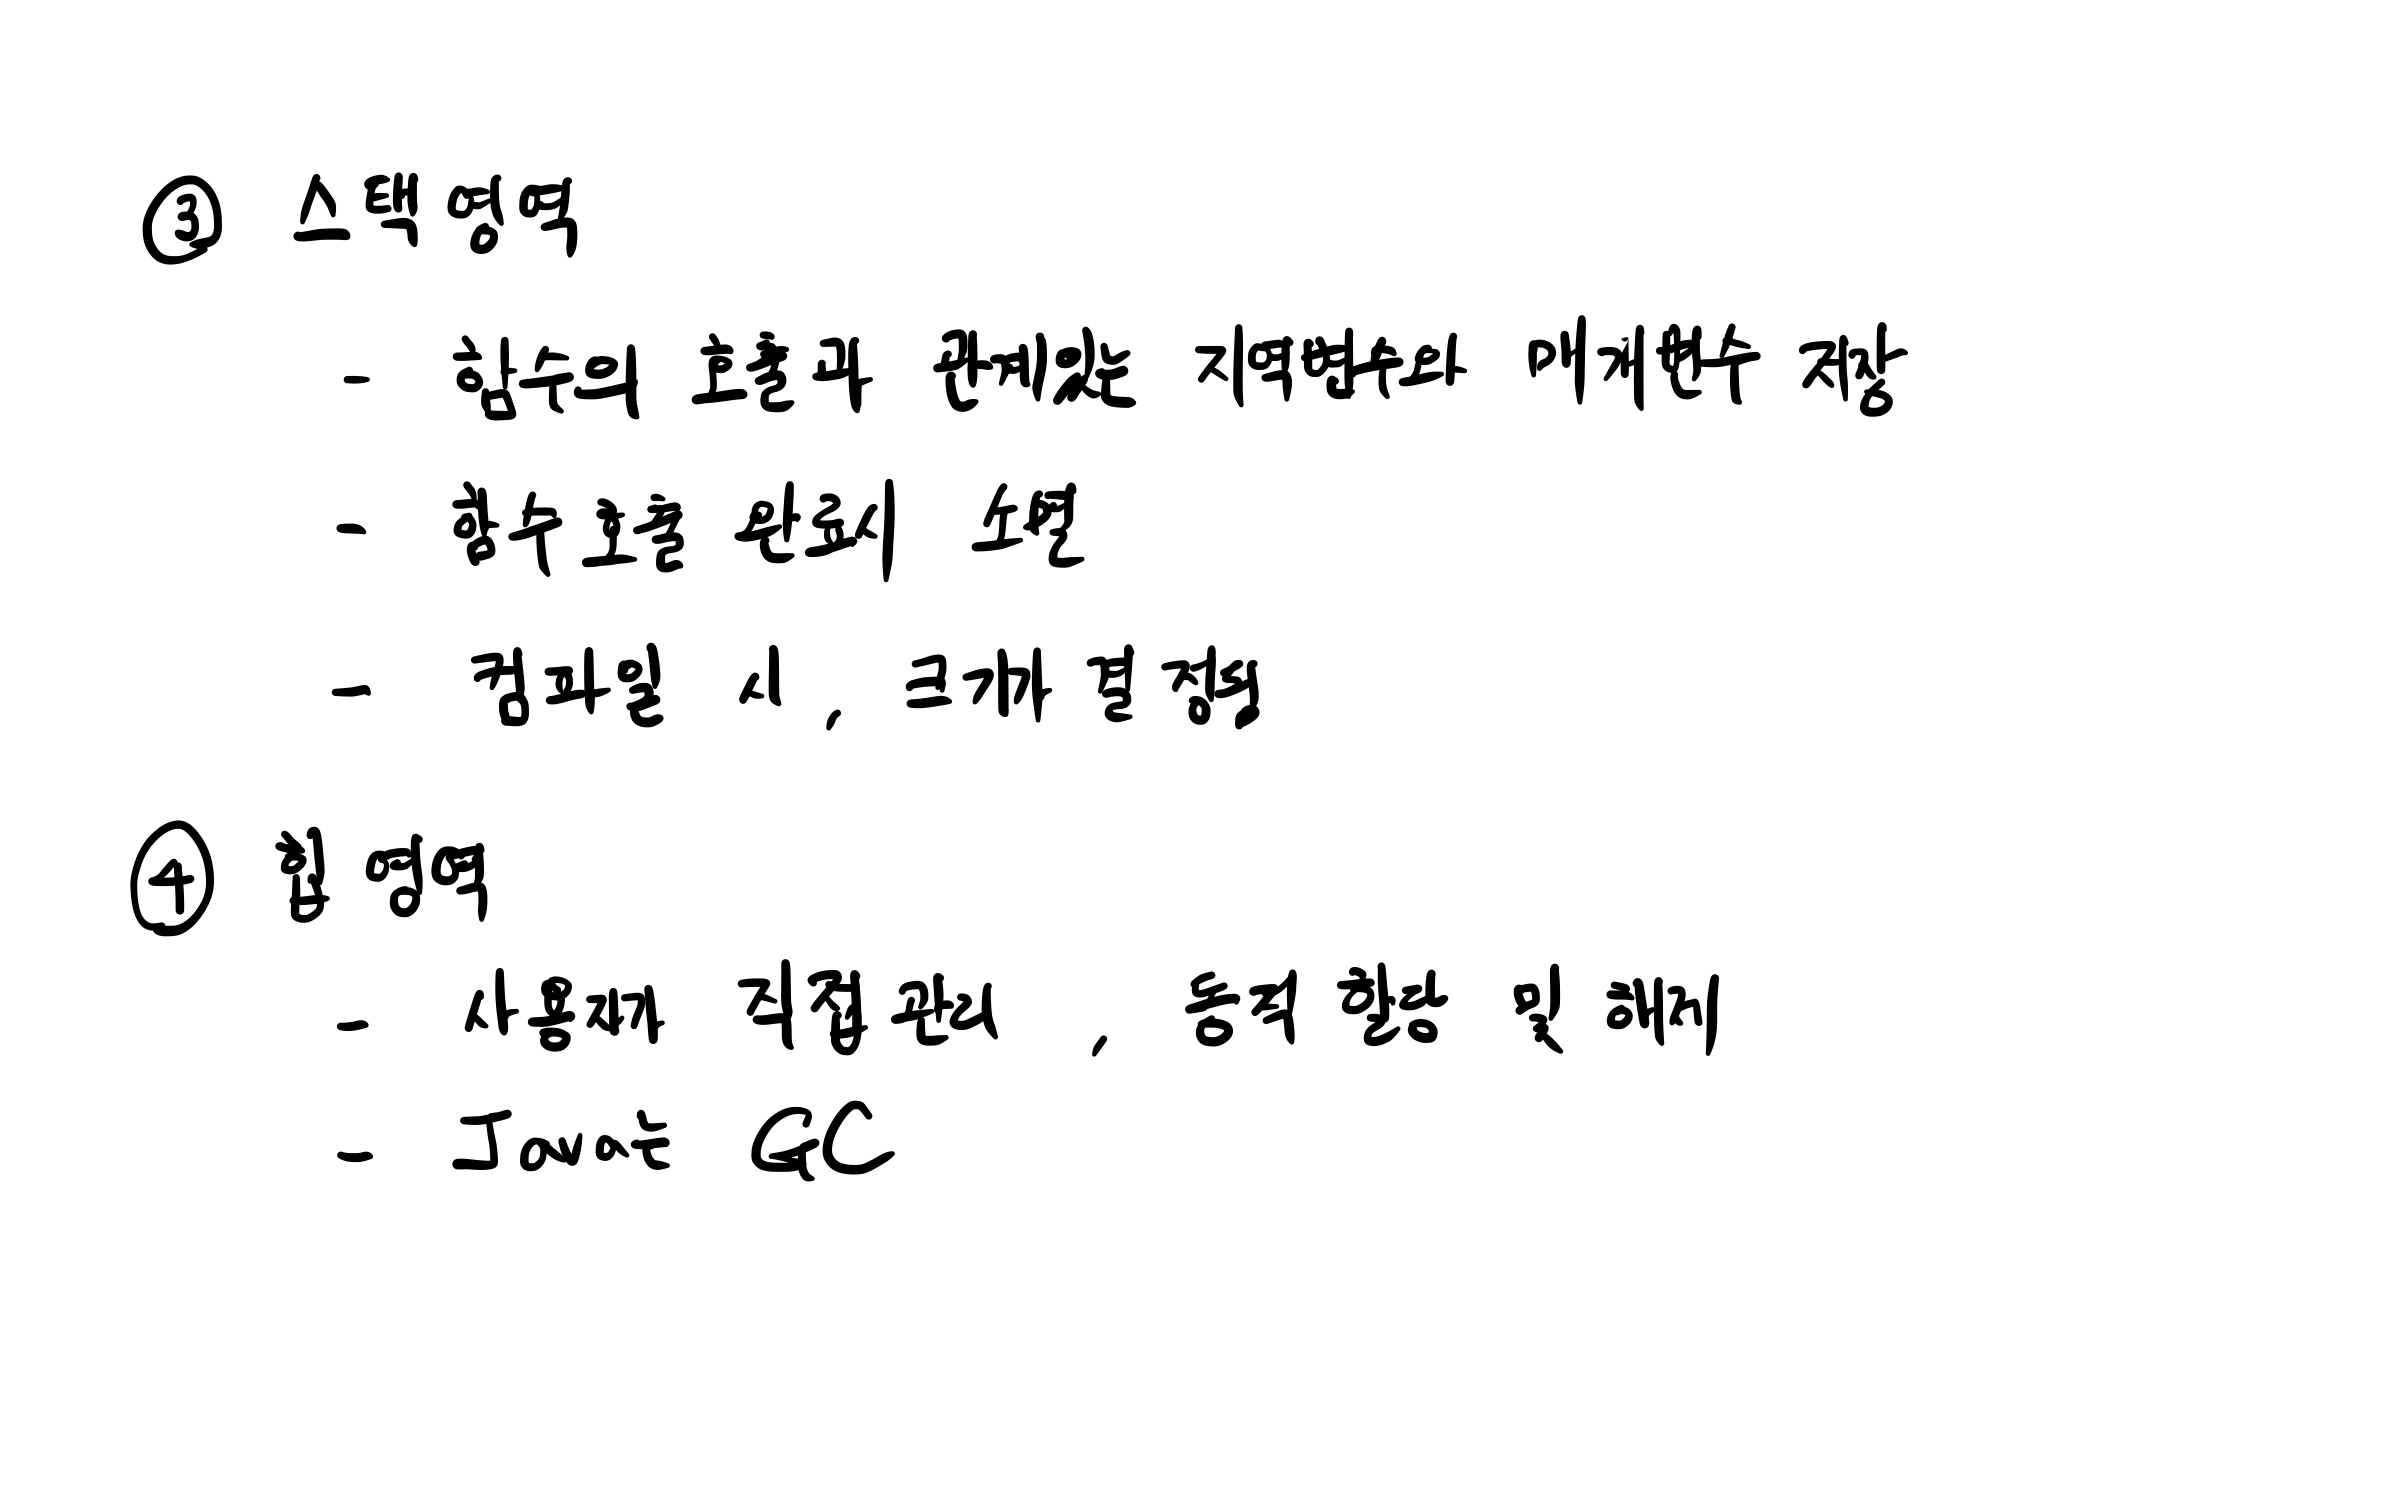 ③ 스택영역
- 함수의 호출과 관계있는 지역변수와 매개변수 저장
- 함수호출 완료시 소멸
- 컴파일 시, 크기가 결정됨
④ 힙 영역
- 사용자가 직접관리, 동적 할당 및 해제
- Java는 GC